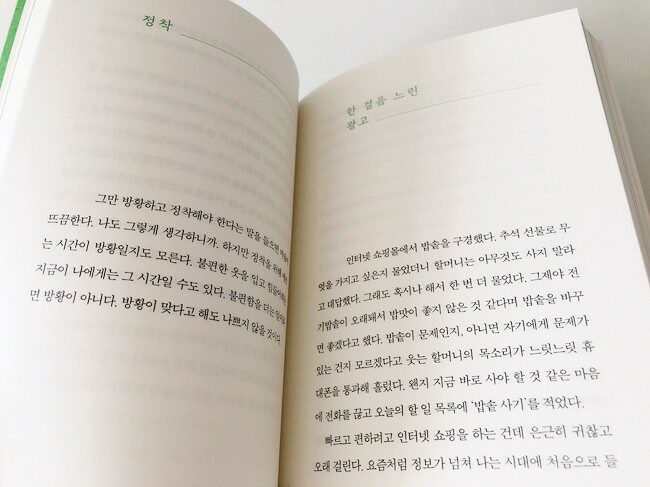 정착
그만 방황하고 정착해야 한다는 말을 들으면
뜨끔한다. 나도 그렇게 생각하니까. 하지만 정착을 위해
는 시간이 방황일지도 모른다. 불편한 옷을 입고
지금이 나에게는 그 시간일 수도 있다. 불편함을 더는
면 방황이 아니다. 방황이 맞다고 해도 나쁘지 않을 것이다
한 걸음 느린
광고
인터넷 쇼핑몰에서 밥솥을 구경했다. 추석 선물로 무
엇을 가지고 싶은지 물었더니 할머니는 아무것도 사지 말라
고 대답했다. 그래도 혹시나 해서 한 번 더 물었다. 그제야 전
기밥솥이 오래돼서 밥맛이 좋지 않은 것 같다며 밥솥을 바꾸
면 좋겠다고 했다. 밥솥이 문제인지, 아니면 자기에게 문제가
있는 건지 모르겠다고 웃는 할머니의 목소리가 느릿느릿 휴
대폰을 통과해 흘렀다. 왠지 지금 바로 사야 할 것 같은 마음
에 전화를 끊고 오늘의 할 일 목록에 ‘밥솥 사기’를 적었다.
빠르고 편하려고 인터넷 쇼핑을 하는 건데 은근히 귀찮고
오래 걸린다. 요즘처럼 정보가 넘쳐 나는 시대에 처음으로 들